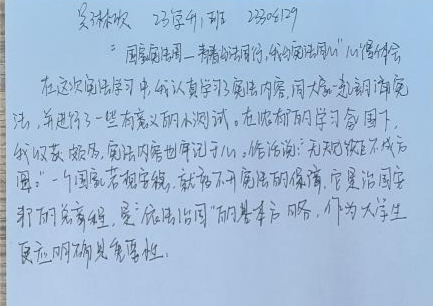 吴林欣 23学升1班 23304129
"国家宪法周—青春与法同行,我与宪法同心"心得体会
在这次宪法学习中,我认真学习了宪法内容,同大家一起朗诵宪
法,并进行了一些有意义的小测试。在浓郁的学习氛围下,
我收获颇多,宪法内容也牢记于心。俗话说:"无规矩不成方
圆。"一个国家若想安稳,就离不开宪法的保障,它是治国安
邦的总章程,是"依法治国"的基本方略,作为大学生
更应明确其重要性.